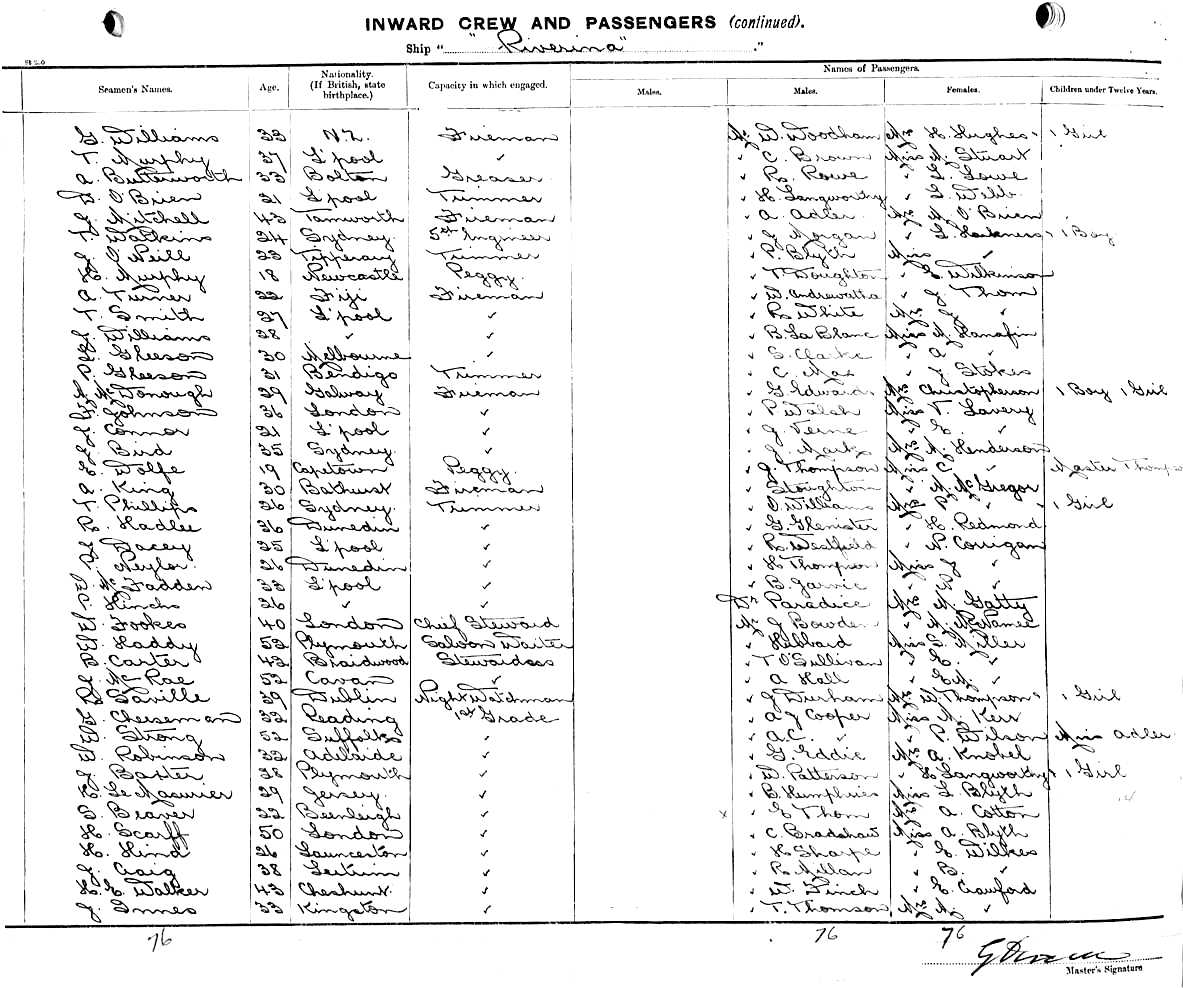 INWARD CREW AND PASSENGERS (continued).
Ship " "Riverina" "
Names of Passengers.
Seamen's Names. Age. Nationality. (If British, state birthplace.) Capacity in which engaged. Males. Males. Females. Children under Twelve Years.
G. Williams 33 N.Z. Fireman Mr W. Woodham Mrs H. Hughes 1 Girl
T. Murphy 37 L'pool ✓ ✓ C. Brown Miss M. Stuart
A. Butterworth 33 Bolton Greaser ✓ R. Rowe ✓ L. Lowe
D. O'Brien 21 L'pool Trimmer ✓ H. Langworthy ✓ L. Webb
J. Mitchell 43 Tamworth Fireman ✓ A. Adler Mrs M. O'Brien
T. Watkins 24 Sydney 5th Engineer ✓ J. Morgan ✓ L. Harkness 1 Boy
J. O'Neill 23 Tipperary Trimmer ✓ P. Blyth Miss ✓
H. Murphy 18 Newcastle Peggy ✓ T. Doughton ✓ E. Wilkinson
A. Turner 22 Fiji Fireman ✓ W. Andrewartha ✓ J. Thom
T. Smith 27 L'pool ✓ ✓ R. White
J. Williams 28 ✓ ✓ ✓ B. La Blanc Miss M. Hanafin
Gleeson 30 Melbourne ✓ ✓ S. Clarke ✓ A ✓
P. Gleeson 31 Bendigo Trimmer ✓ C. Max ✓ J. Stokes
McDonough 29 Galway Fireman ✓ G. Edwards Mrs Christopherson 1 Boy 1 Girl
Johnson 36 London ✓ ✓ P. Walsh Miss T. Lavery
J. Connor 21 L'pool ✓ ✓ J. Verne ✓ E. ✓
J. Bird 35 Sydney ✓ ✓ J. Marks Mrs M. Henderson
E. Wolfe 19 Capetown Peggy ✓ J. Thompson Miss C. ✓ Master Thompso
A. King 30 Bathurst Fireman ✓ Stoughton ✓ M. McGregor
T. Phillips 26 Sydney Trimmer ✓ O. Williams Mrs P. ✓ 1 Girl
R. Hadlee 36 Dunedin ✓ ✓ G. Glenister ✓ H. Redmond
J. Dacey 25 L'pool ✓ ✓ R. Westfield ✓ N. Corrigan
Neylor 26 Dunedin ✓ ✓ H. Thompson Miss J ✓
McFadden 33 L'pool ✓ ✓ B. Garnie ✓
P. Hinchs 36 ✓ ✓ Dr Paradice Mrs M. Gatty
W. Fookes 40 London Chief Steward Mr J. Bowden ✓ M. McNamee
W. Haddy 52 Plymouth Saloon Waiter ✓ Hibbard Miss S. Miller
B. Carter 42 Braidwood Stewardess ✓ T. O'Sullivan ✓ E. ✓
J. McRae 52 Cavan ✓ ✓ A Hall ✓ E.M. ✓
Saville 39 Dublin Night Watchman ✓ J. Durham Mrs W. Thompson 1 Girl
G. Cheeseman 32 Reading 1st Grade ✓ A J Cooper Miss M. Kerr
Strong 52 Suffolks ✓ ✓ A.C. ✓ ✓ P. Wilson Miss Adler
W. Robinson 32 Adelaide ✓ ✓ G. Eddie Mrs A. Knobel
J. Baxter 28 Plymouth ✓ ✓ W. Patterson ✓ H. Langworthy 1 Girl
H. Le Masurier 29 Jersey ✓ ✓ B. Humphries Miss L. Blyth
S. Beaver 22 Beenleigh ✓ x ✓ E Thom Mrs A. Cotton
H. Scarff 50 London ✓ ✓ C. Bradshaw Miss A. Blyth
H. Hind 26 Launceston ✓ ✓ H Sharpe ✓ E. Wilkes
J. Craig 38 ✓ ✓ R. Millan ✓ B. ✓
H. E. Walker 43 Cheshunt ✓ ✓ W. Finch ✓ E. Crawford
J. Innes 33 Kingston ✓ ✓ T. Thomson Mrs M. ✓
76 76 76
Master's Signature